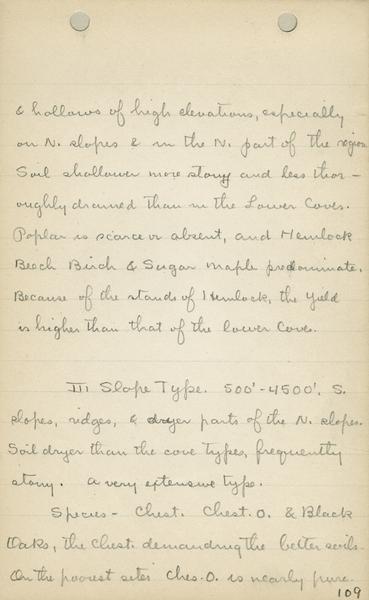 & hollows of high elevations, especially
on N. slopes & in the N. part of the region
Soil shallower more stony and less thor-
oughly drained than in the Lower Coves.
Poplar is scarce or absent, and Hemlock
Beech Birch & Sugar maple predominate.
Because of the stands of Hemlock, the yield
is higher than that of the lower Cove.
III Slope Type. 500'-4500'. S.
slopes, ridges, & dryer parts of the N. slopes.
Soil dryer than the cove types, frequently
stony. A very extensive type.
Species - Chest. Chest. O. & Black
Oaks, the Chest. demanding the better soils.
On the poorest sites Ches. O. is nearly pure.
109